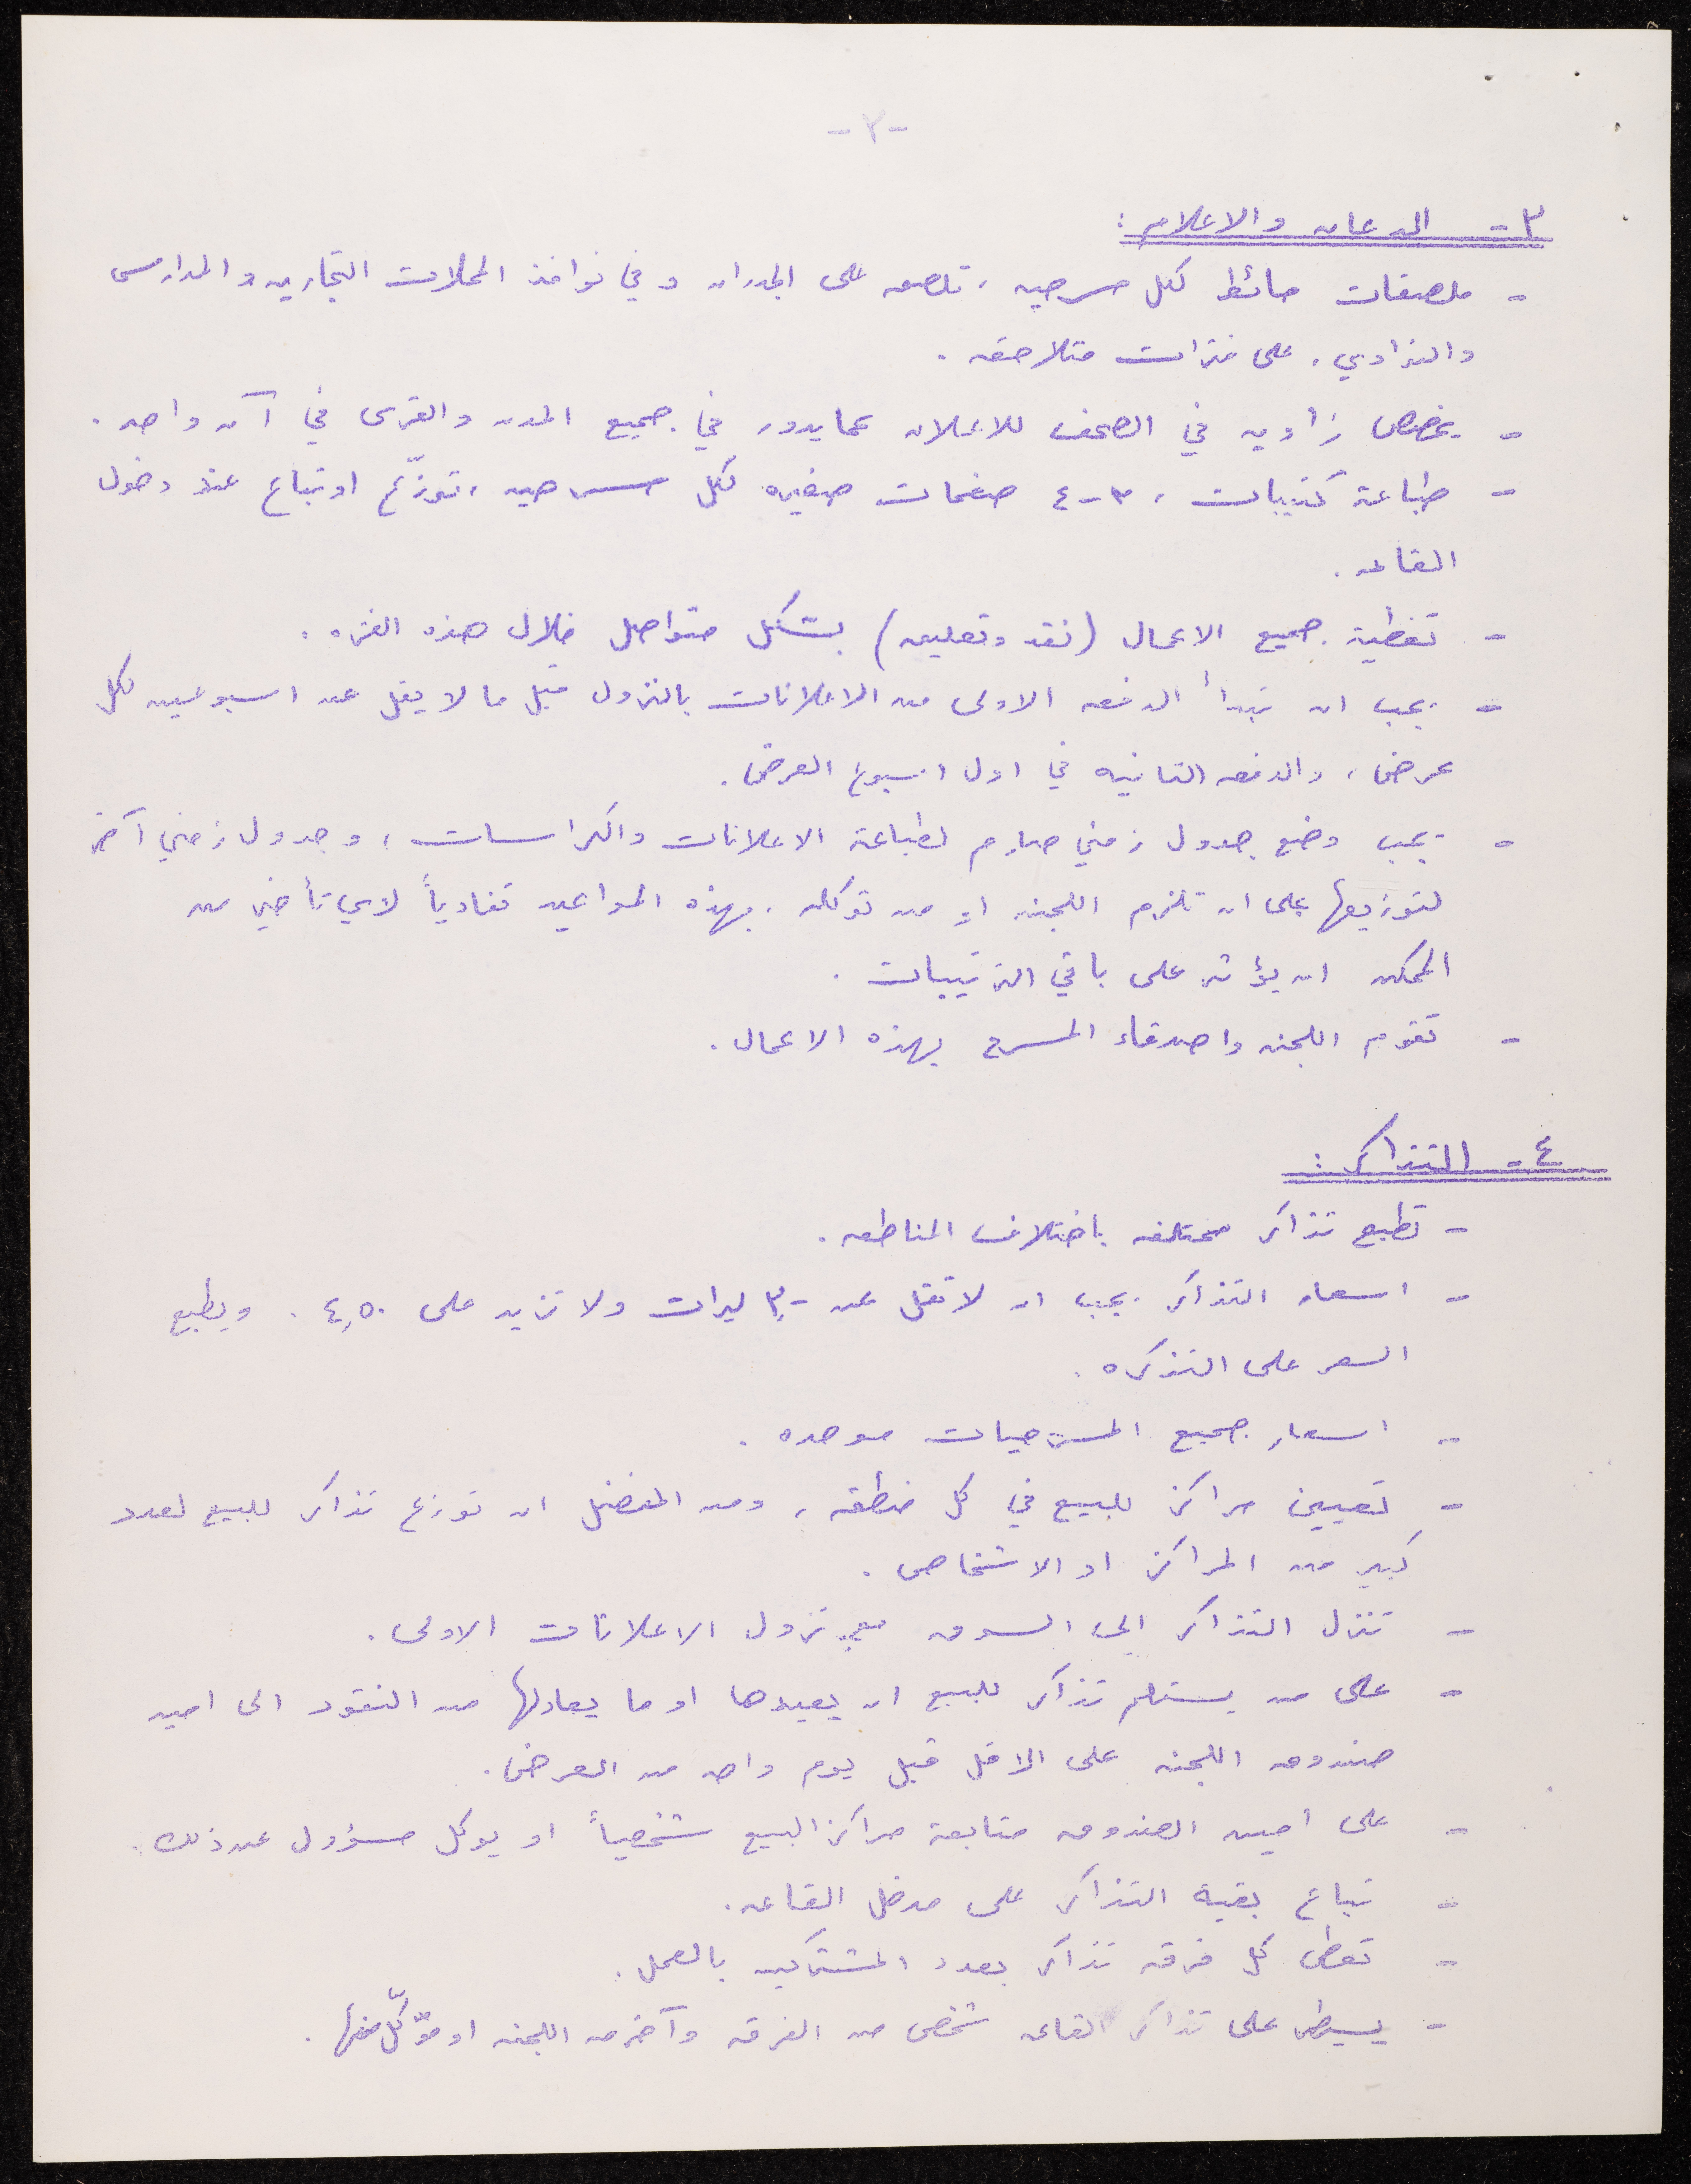 -٢-
٣- الدعايه والاعلام:
- ملصقات حائط لكل مسرحيه، تلصق على الجدران وفي نوافذ المحلات التجاريه والمدارس
والنوادي، على فترات متلاحقه.
- يخصص زاويه في الصحف للاعلان عما يدور في جميع المدن والقرى في آن واحد.
- طباعة كتيبات، ٣-٤ صفحات صغيره لكل مسرحيه، توزّع او تباع عند دخول
القاعه.
- تغطية جميع الاعمال (نقد وتعليق) بشكل متواصل خلال هذه الفتره.
- يجب ان تبدأ الدفعه الاولى من الاعلانات بالنزول قبل ما لا يقل عن اسبوعين لكل
عرض، والدفعه الثانيه في اول اسبوع العرض.
- يجب وضع جدول زمني صارم لطباعة الاعلانات والكراسات، وجدول زمني آخر
لتوزيعها على ان تلزم اللجنه او من توكله بهذه المواعيد تفادياً لاي تأخير من
الممكن ان يؤثر على باقي الترتيبات.
- تقوم اللجنه واصدقاء المسرح بهذه الاعمال.
٤- التذاكر:
- تطبع تذاكر مختلفه باختلاف المناطق.
- اسعار التذاكر يجب ان لا تقل عن ٣٫- ليرات ولا تزيد على ٤٫٥٠. ويطبع
السعر على التذكره.
- اسعار جميع المسرحيات موحده.
- تعيين مراكز للبيع في كل منطقه، ومن المفضل ان توزع تذاكر للبيع لعدد
كبير من المراكز او الاشخاص.
- تنزل التذاكر الى السوق مع نزول الاعلانات الاولى.
- على من يستلم تذاكر للبيع ان يعيدها او ما يعادلها من النقود الى امين
صندوق اللجنه على الاقل قبل يوم واحد من العرض.
- على امين الصندوق متابعة مراكز البيع شخصياً او يوكل مسؤول عن ذلك.
- تباع بقية التذاكر على مدخل القاعه.
- تعطى كل فرقه تذاكر بعدد المشتركين بالعمل.
- يسيطر على تذاكر القاعه شخص من الفرقه وآخر من اللجنه او موكّل منها.